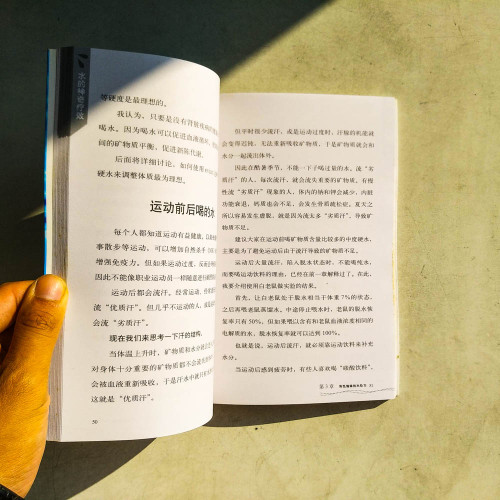 水的神奇疗效
等硬度是最理想的。
我认为，只要是没有肾脏疾病的
喝水。因为喝水可以促进血液循环，
间的矿物质平衡，促进新陈代谢。
后面将详细讨论，如何使用
硬水来调整体质最为理想。
运动前后喝的水
每个人都知道运动有益健康。以
事散步等运动，可以增加自然杀手
增强免疫力。但如果运动过度，反而
因此不能像职业运动员一样随意进行
运动后都会流汗。经常运动、
流“优质汗”。但几乎不运动的人，
会流“劣质汗”。
现在我们来思考一下汗的结构。
当体温上升时，矿物质和水分
对身体十分重要的矿物质都不会流
会被血液重新吸收，于是汗水中就只
这就是“优质汗”。
50
但平时很少流汗，或是运动过度时，汗腺的机能就
会变得迟钝，无法重新吸收矿物质，于是矿物质就会和
水分一起流出体外。
因此在酷暑季节，不能一下子喝过量的水。流“劣
质汗”的人，每次流汗，就会流失重要的矿物质。有慢
性流“劣质汗”现象的人，体内的钠和钾会减少，内脏
功能衰退，钙质也会不足，会发生骨质疏松症。夏天之
所以容易发生虚脱，就是因为流太多“劣质汗”，导致矿
物质不足。
建议大家在运动前喝矿物质含量比较多的中度硬水，
主要是为了避免运动后由于流汗导致矿物质的不足。
运动后大量流汗，陷入脱水状态时，不能喝纯水，
而要喝运动饮料的理由，已经在前一章解释过了。在此，
我要介绍使用白老鼠做实验的结果。
首先，让白老鼠处于脱水相当于体重7%的状态，
之后再喂老鼠蒸馏水。中途停止喂水时，老鼠的脱水恢
复率只有50%。但如果喂以含有和老鼠血液浓度相同的
电解质的水，脱水恢复率就可以达到100%。
也就是说，运动后流汗，就必须靠运动饮料来补充
水分。
当运动后感到疲劳时，有些人喜欢喝“碳酸饮料”。
第3章
51